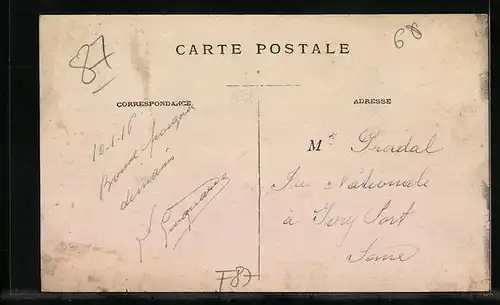 87
68
CARTE POSTALE
CORRESPONDANCE
ADRESSE
10-1-16
Bonne
demain
Mr Pradal
Rue Nationale
à Ivry Port
Seine
F87